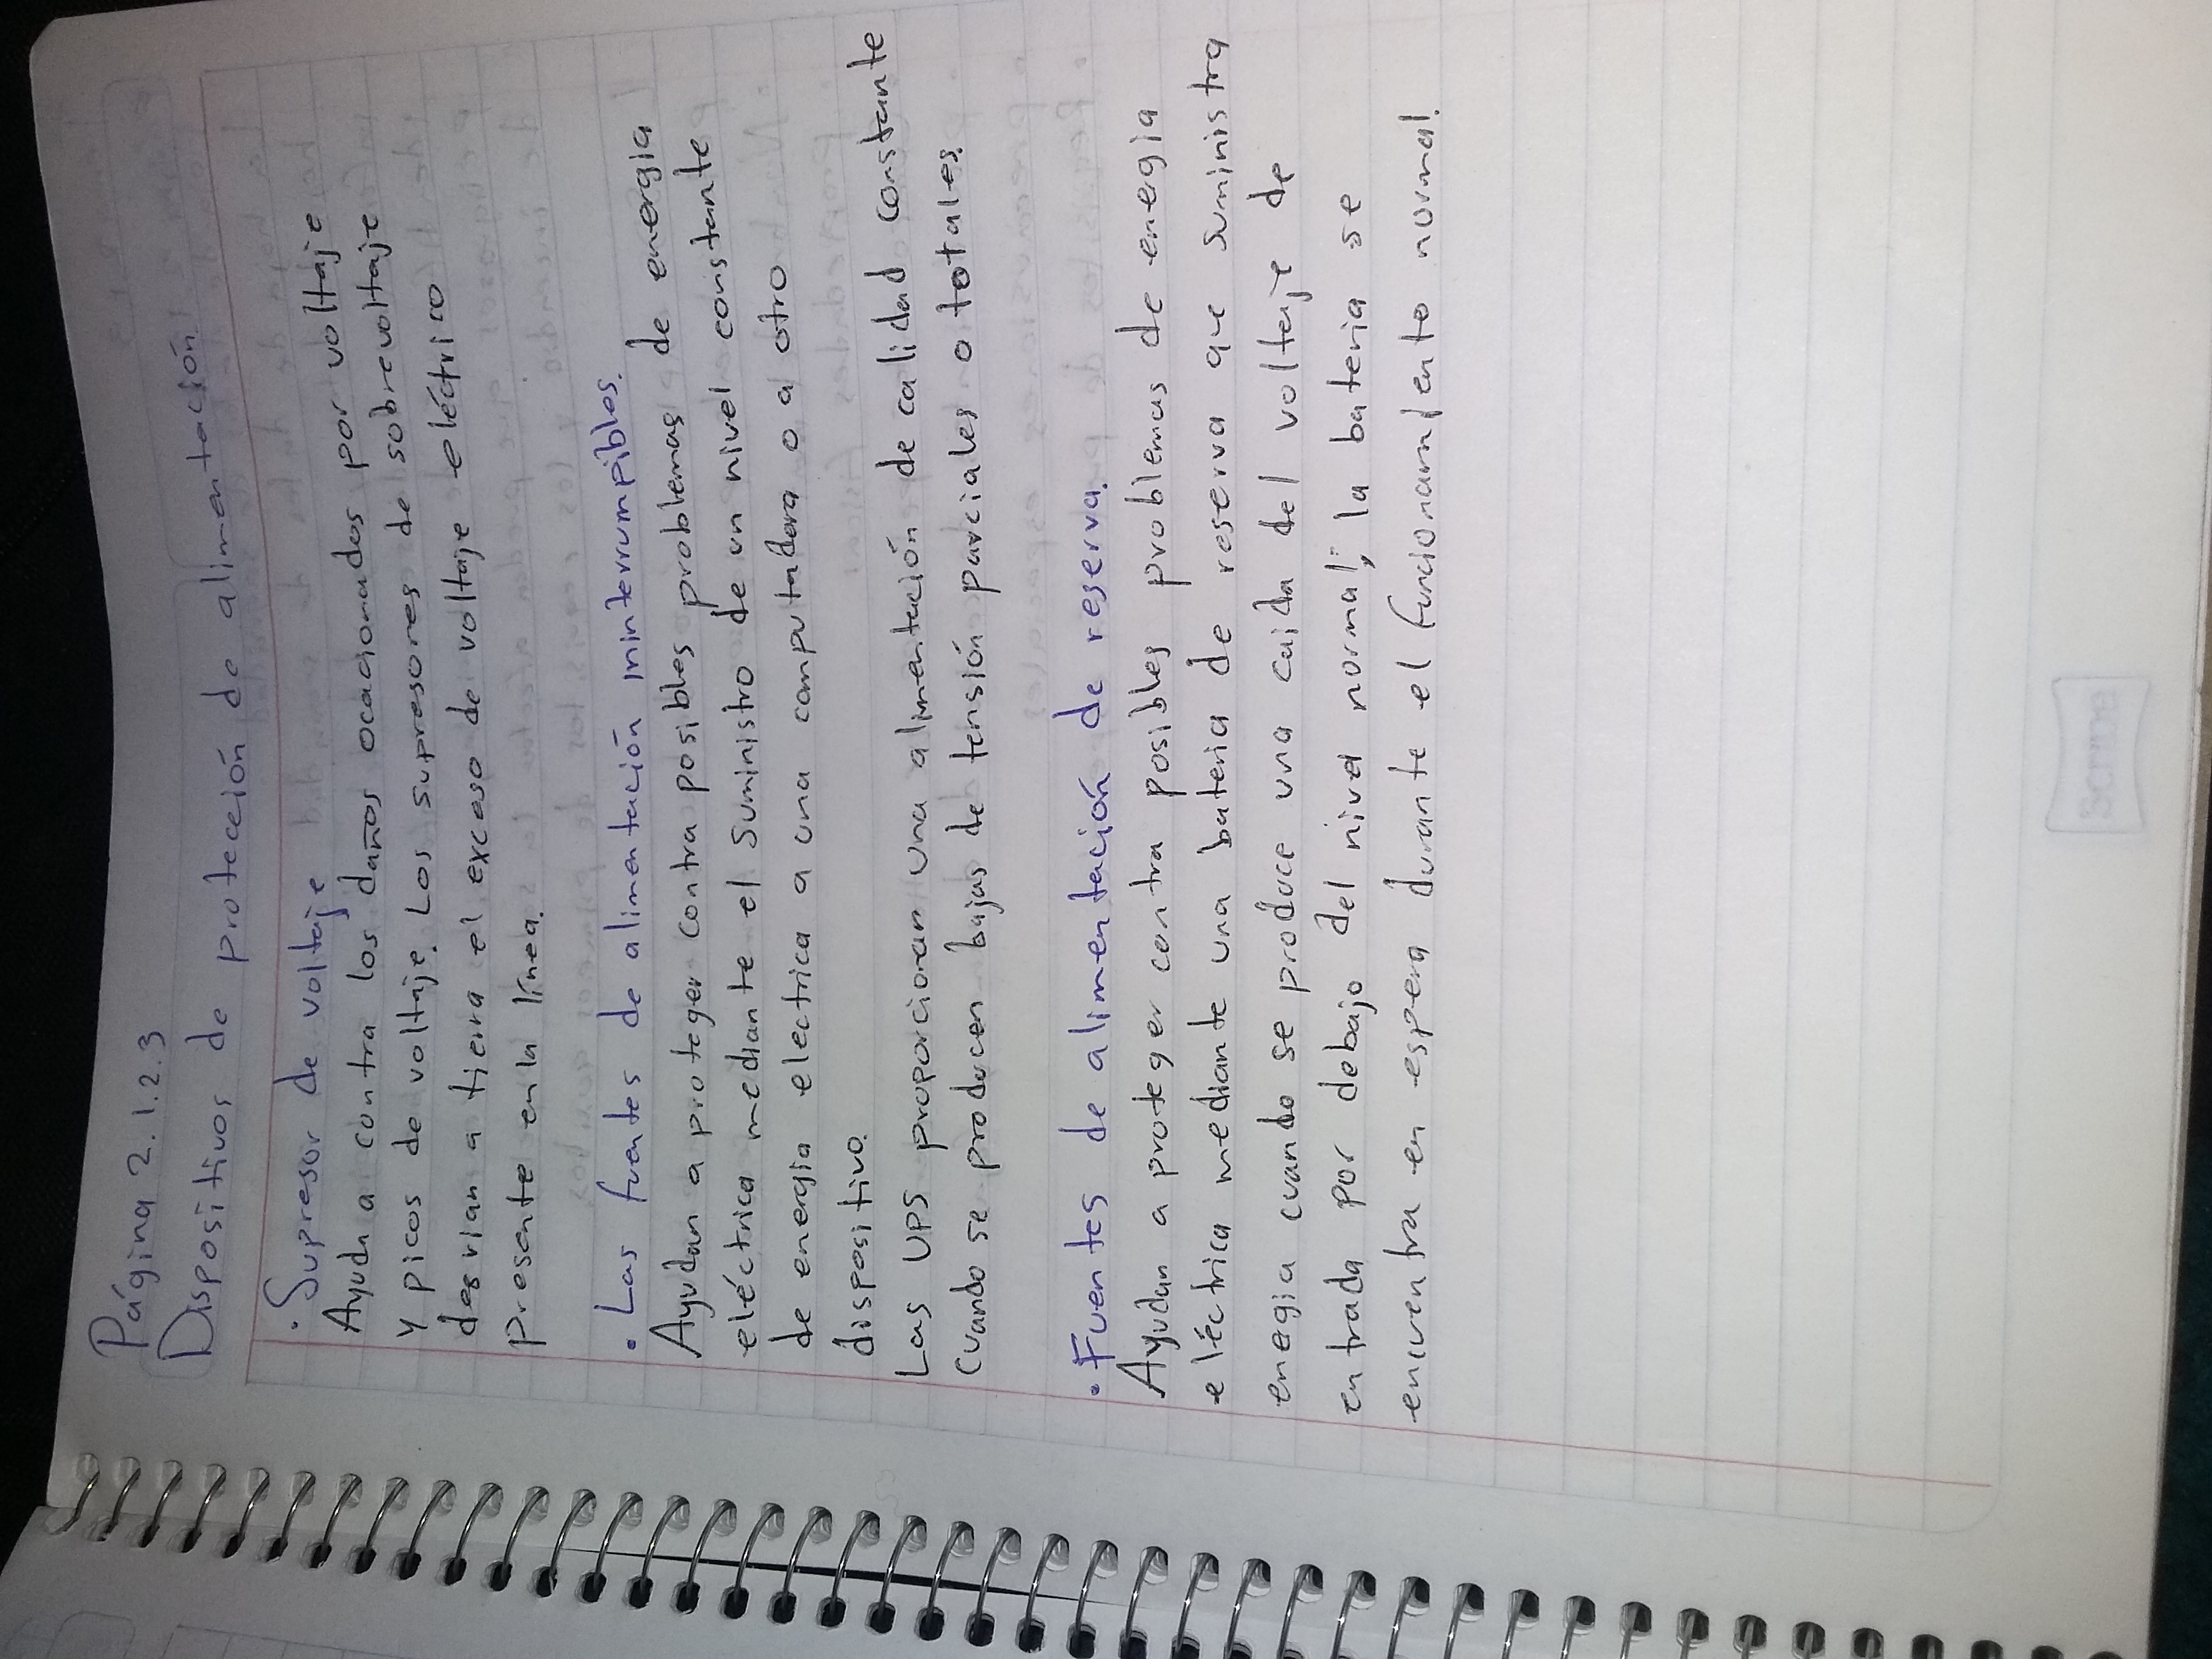 Página 2.1.2.3
Dispositivos de protección de alimentación.
· Supresor de voltaje
Ayuda a contra los daños ocacionados por voltaje
y picos de voltaje. Los supresores de sobrevoltaje
desvian a tierra el exceso de voltaje eléctrico
presente en la línea.
· Las fuentes de alimentación ininterrumpibles.
Ayudan a proteger contra posibles problemas de energia
eléctrica mediante el suministro de un nivel constante
de energia electrica a una computadora o a otro
dispositivo.
Las UPS proporcionan una alimentación de calidad constante
cuando se producen bajas de tensión parciales o totales.
· Fuentes de alimentación de reserva.
Ayudan a proteger contra posibles problemas de energia
eléctrica mediante una bateria de reserva que suministra
enegia cuando se produce una caida del voltaje de
entrada por debajo del nivel normal; la bateria se
encuentra en espera durante el funcionamiento normal.
Scribe